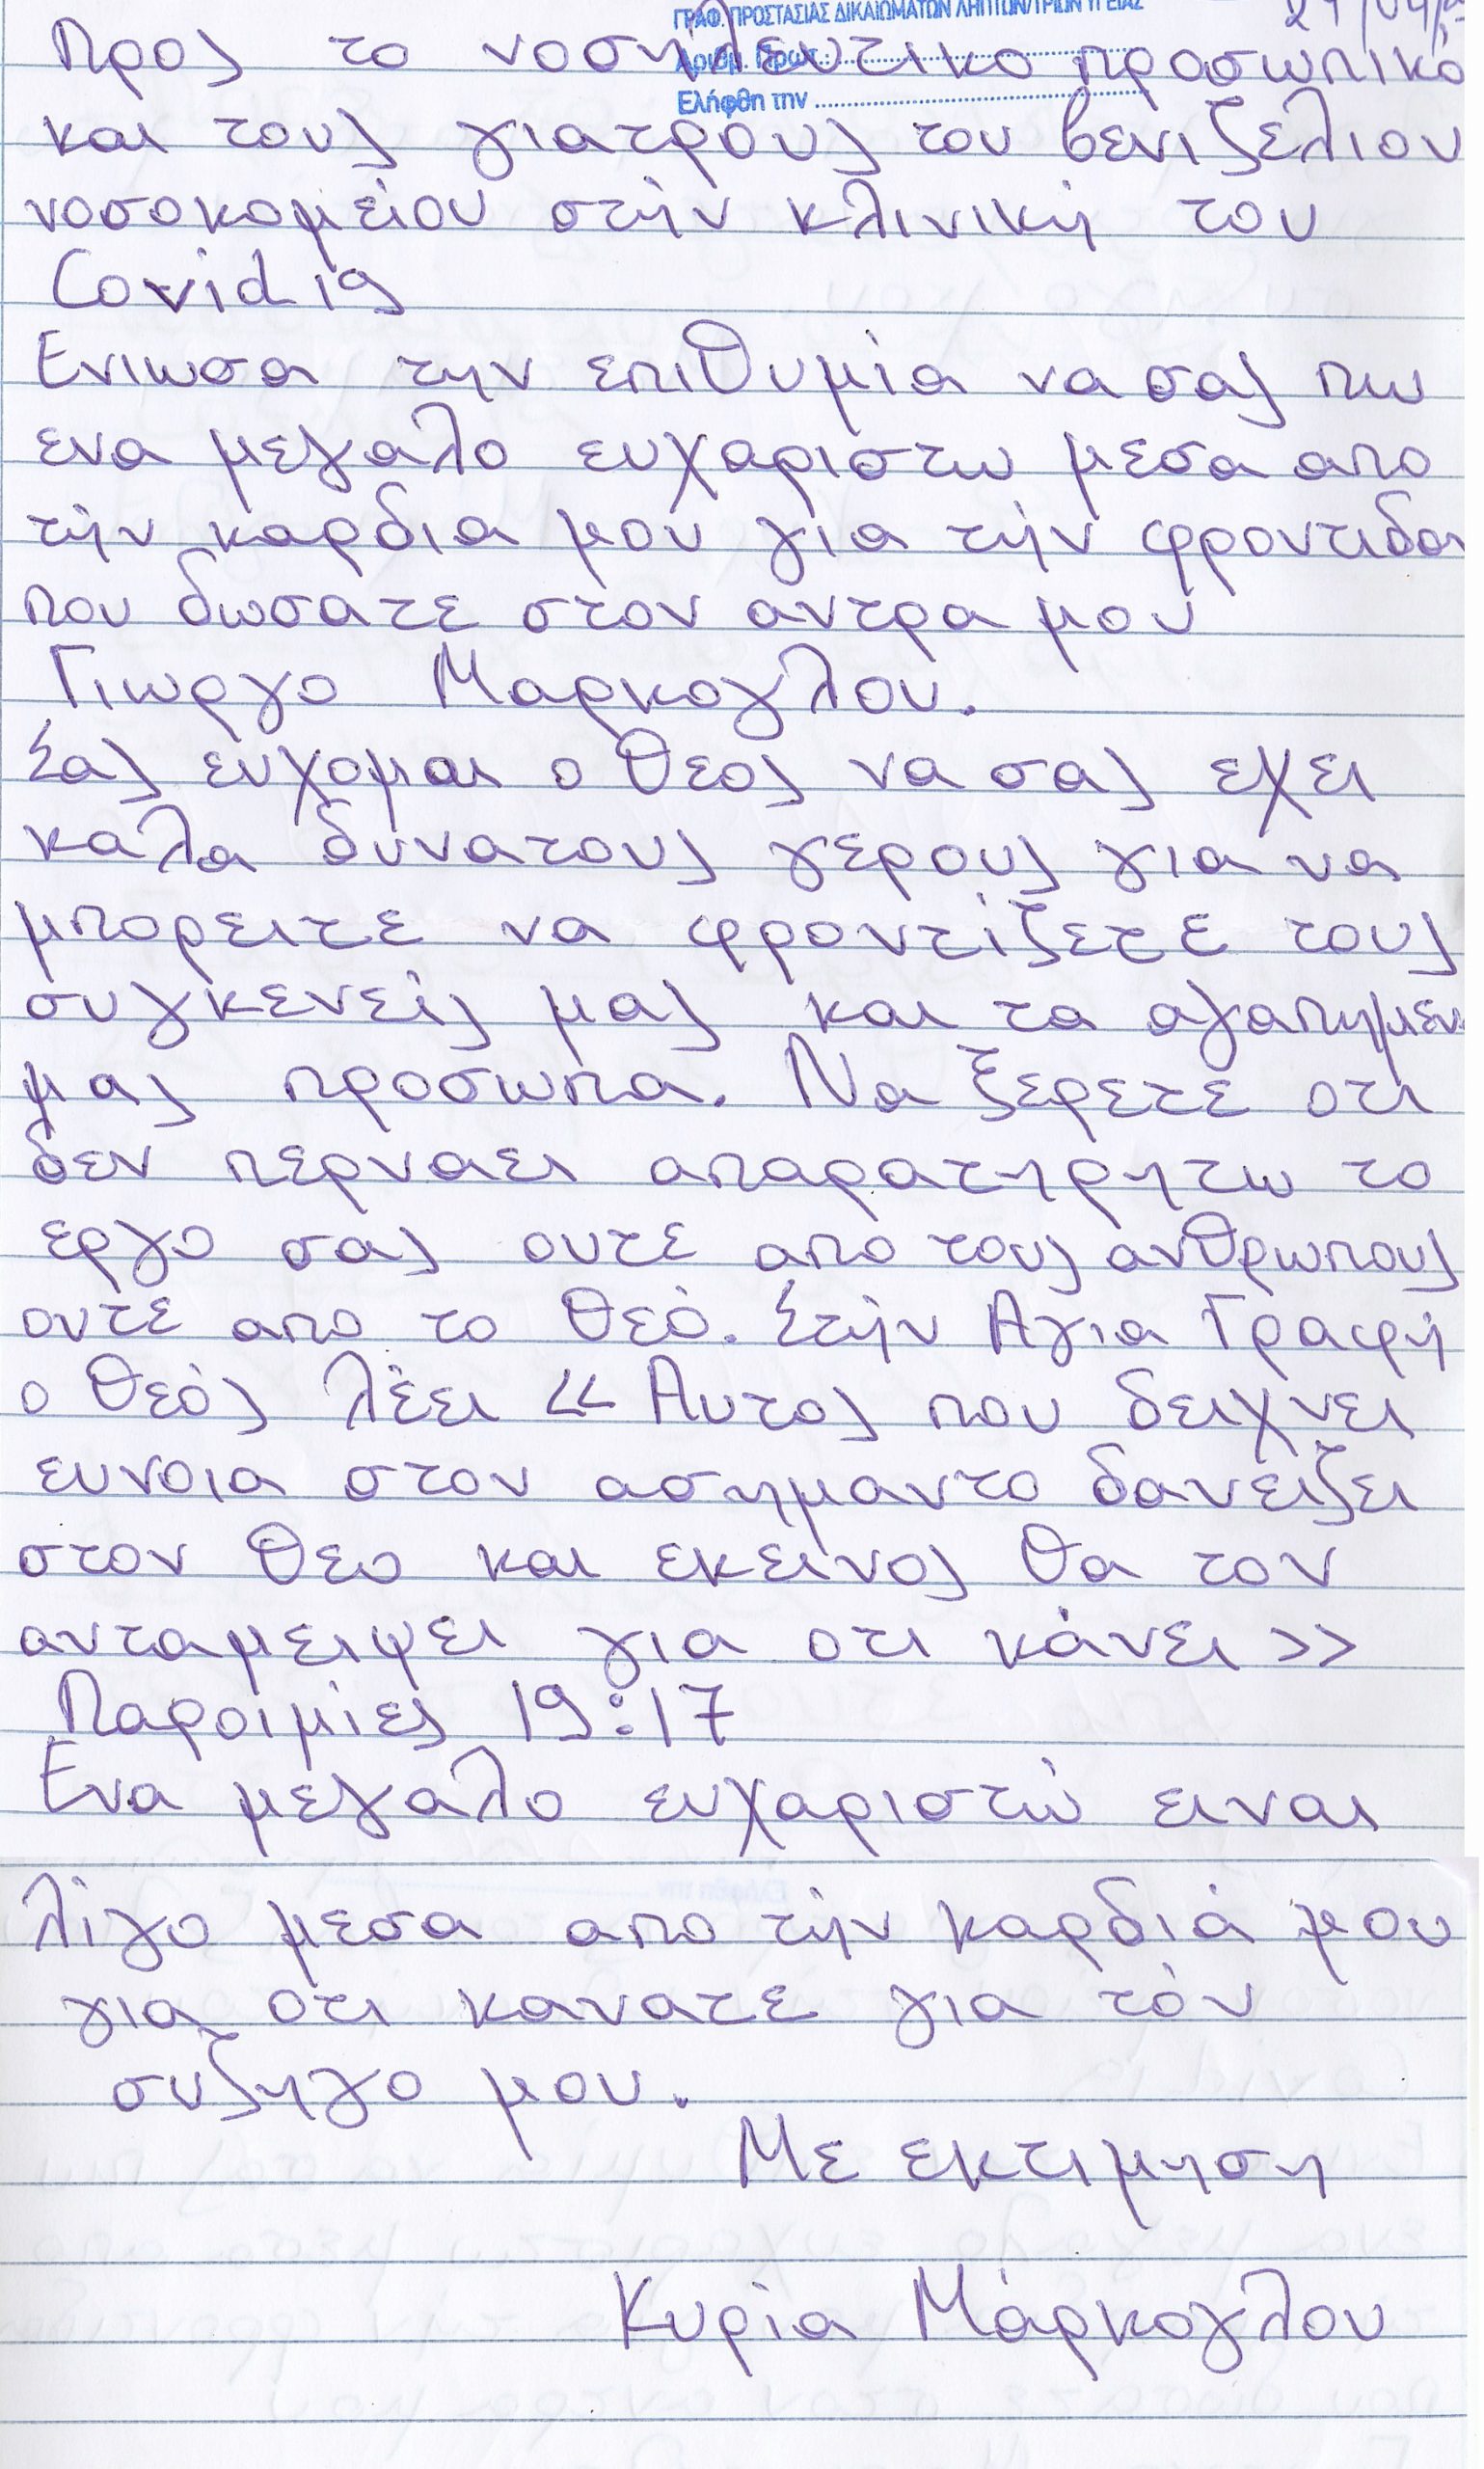 ΓΡΑΦ. ΠΡΟΣΤΑΣΙΑΣ ΔΙΚΑΙΩΜΑΤΩΝ ΛΗΠΤΩΝ/ΤΡΙΩΝ ΥΓΕΙΑΣ
Αριθμ. Πρωτ.
Ελήφθη την
Προς το νοσηλευτικο προσωπικό
και τους γιατρους του βενιζελιου
νοσοκομείου στήν κλινική του
Covid 19
Ενιωσα την επιθυμία να σας πω
ενα μεγαλο ευχαριστω μεσα απο
τήν καρδια μου για τήν φροντιδα
που δωσατε στον αντρα μου
Γιωργο Μαρκογλου.
Σας εύχομαι ο θεος να σας εχει
καλα δυνατους γερους για να
μπορειτε να φροντίζετε τους
συγκενείς μας και τα αγαπημεν
μας προσωπα. Να ξερετε οτι
δεν περναει απαρατηρητω το
εργο σας ουτε απο τους ανθρωπους
ουτε απο το θεό. Στήν Αγια Γραφή
ο θεός λέει << Αυτος που δειχνει
ευνοια στον ασημαντο δανείζει
στον θεο και εκείνος θα τον
ανταμειψει για οτι κάνει >>
Παροιμίες 19:17
Ενα μεγαλο ευχαριστώ ειναι
λίγο μεσα απο τήν καρδιά μου
για οτι κανατε για τόν
συζηγο μου.
Με εκτιμηση
Κυρία Μάρκογλου